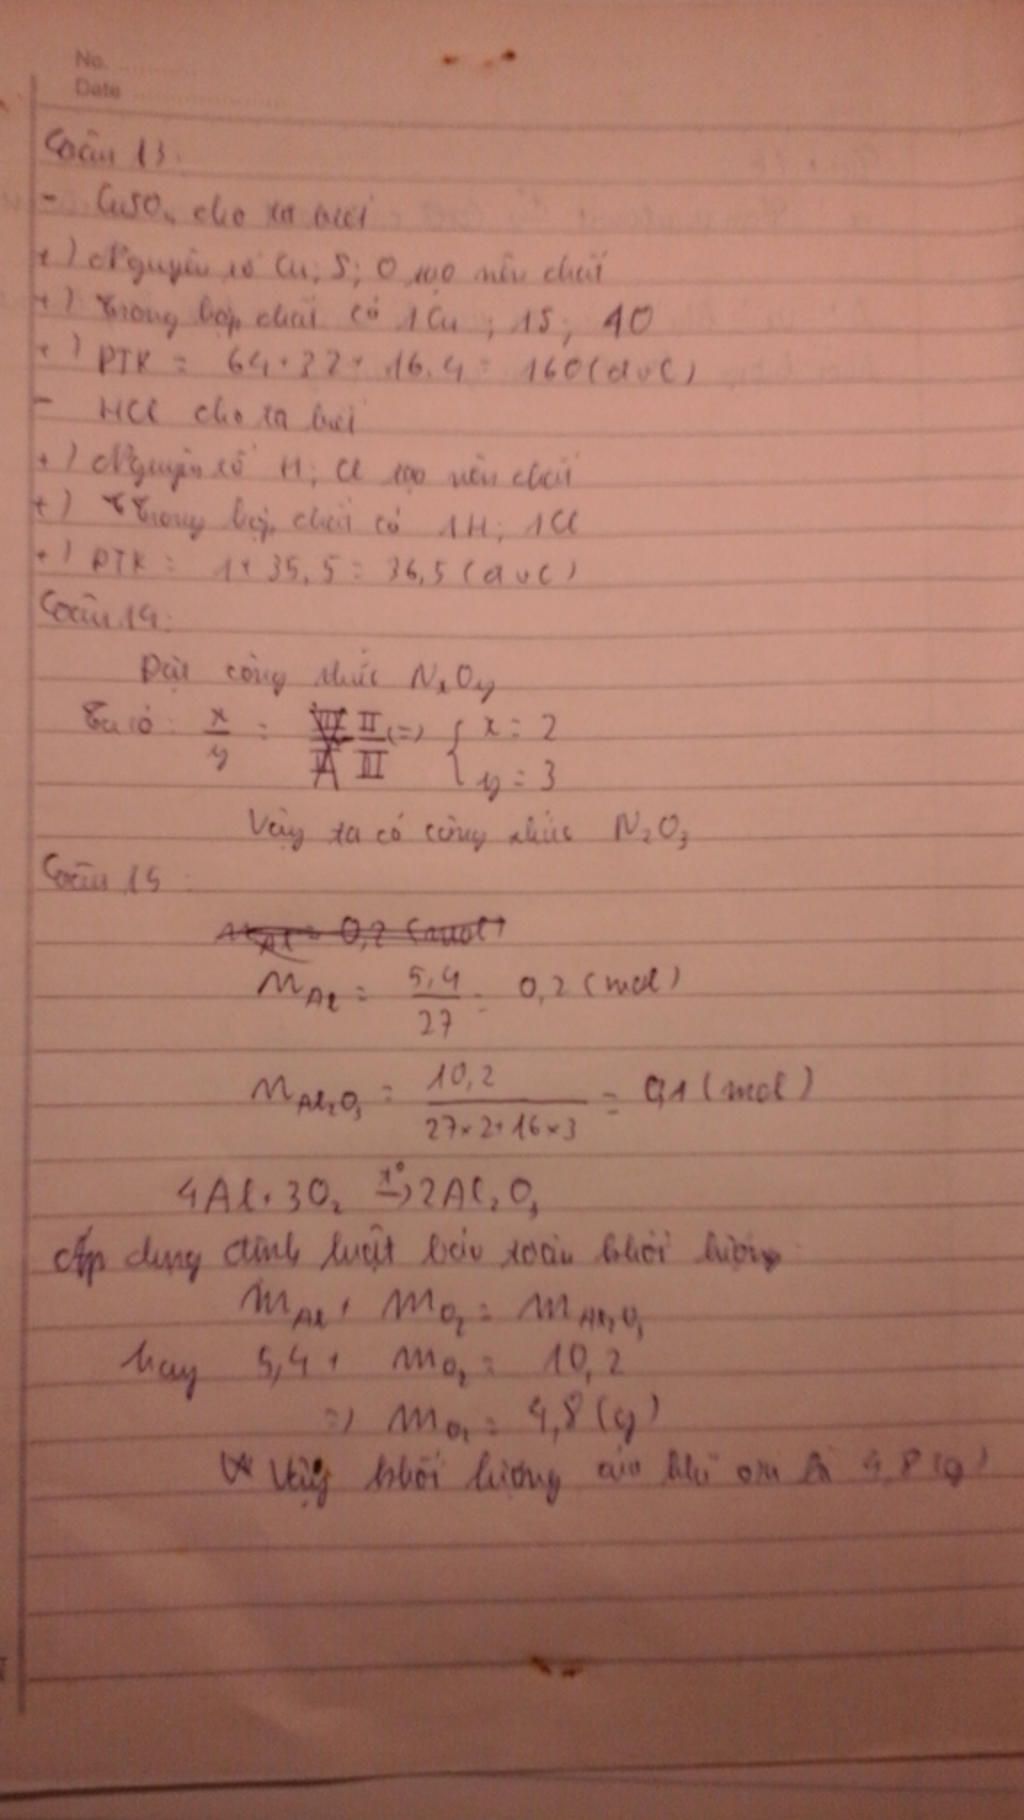 No. ..............
Date ......................
Câu 13:
- CuSO₄ cho ta biết
+) Nguyên tố Cu; S; O tạo nên chất
+) Trong hợp chất có 1Cu; 1S; 4O
+) PTK = 64+32+16.4 = 160(đvC)
- HCl cho ta biết
+) Nguyên tố H; Cl tạo nên chất
+) Trong hợp chất có 1H; 1Cl
+) PTK = 1+35,5 = 36,5(đvC)
Câu 14:
Đặt công thức NₓOy
Ta có: x/y = II/III (=) { x = 2
y = 3
Vậy ta có công thức N₂O₃
Câu 15:
nAl = 0,2 (mol)
nAl = 5,4/27 = 0,2 (mol)
nAl₂O₃ = 10,2/27×2+16×3 = 0,1 (mol)
4Al + 3O₂ t°→ 2Al₂O₃
Áp dụng định luật bảo toàn khối lượng:
mAl + mO₂ = mAl₂O₃
hay 5,4 + mO₂ = 10,2
=) mO₂ = 4,8(g)
Vậy khối lượng của khí oxi là 4,8(g)